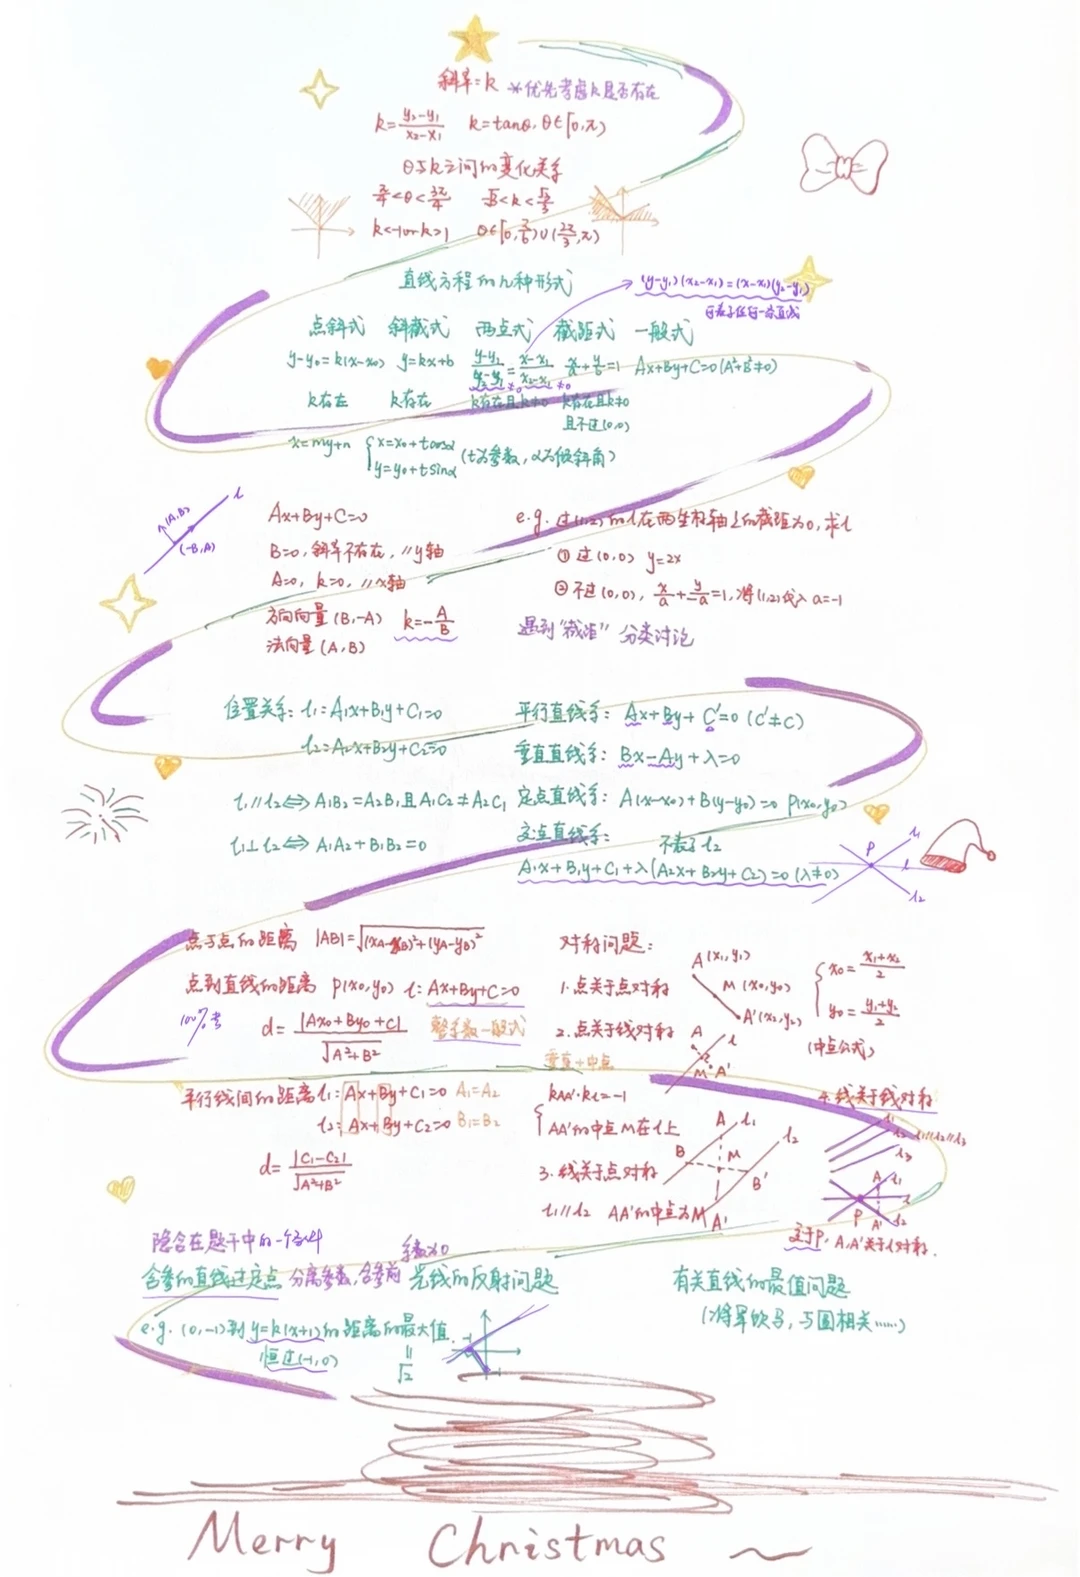 斜率=k *优先考虑k是否存在
k=\frac{y₂-y₁}{x₂-x₁} k=tanθ, θ∈[0,π)
θ与k之间的变化关系
\frac{π}{4}<θ<\frac{3π}{4} -√3<k<\frac{√3}{3}
k<-1 or k>1 θ∈[0,\frac{π}{6})∪(\frac{2π}{3},π)
直线方程的几种形式
(y-y₁)(x₂-x₁)=(x-x₁)(y₂-y₁)
可表示任何一条直线
点斜式 斜截式 两点式 截距式 一般式
y-y₀=k(x-x₀) y=kx+b \frac{y-y₁}{y₂-y₁}=\frac{x-x₁}{x₂-x₁} \frac{x}{a}+\frac{y}{b}=1 Ax+By+C=0(A²+B²≠0)
≠0 ≠0
k存在 k存在 k存在且k≠0 k存在且k≠0
且不过(0,0)
x=my+n {x=x₀+tcosα
y=y₀+tsinα (t为参数,α为倾斜角)
l
(A,B)
(-B,A)
Ax+By+C=0
B=0,斜率不存在, //y轴
A=0, k=0, //x轴
方向向量(B,-A) k=-\frac{A}{B}
法向量(A,B)
e.g. 过(1,2)的l在两坐标轴上的截距为0,求l
① 过(0,0) y=2x
② 不过(0,0), \frac{x}{a}+\frac{y}{-a}=1, 将(1,2)代入 a=-1
遇到"截距" 分类讨论
位置关系: l₁=A₁x+B₁y+C₁=0
l₂=A₂x+B₂y+C₂=0
l₁//l₂⇔A₁B₂=A₂B₁且A₁C₂≠A₂C₁
l₁⊥l₂⇔A₁A₂+B₁B₂=0
平行直线系: Ax+By+C'=0 (C'≠C)
垂直直线系: Bx-Ay+λ=0
定点直线系: A(x-x₀)+B(y-y₀)=0 P(x₀,y₀)
交点直线系: 不表示l₂
A₁x+B₁y+C₁+λ(A₂x+B₂y+C₂)=0 (λ≠0)
P l₁ l l₂
点与点的距离 |AB|=\sqrt{(xA-xB)²+(yA-yB)²}
点到直线的距离 P(x₀,y₀) l: Ax+By+C=0
100%考
d=\frac{|Ax₀+By₀+C|}{\sqrt{A²+B²}} 整系数一般式
平行线间的距离l₁: Ax+By+C₁=0 A₁=A₂
l₂: Ax+By+C₂=0 B₁=B₂
d=\frac{|C₁-C₂|}{\sqrt{A²+B²}}
对称问题:
1. 点关于点对称
A(x₁,y₁)
M(x₀,y₀)
A'(x₂,y₂)
{x₀=\frac{x₁+x₂}{2}
y₀=\frac{y₁+y₂}{2}
(中点公式)
2. 点关于线对称
垂直+中点
A l
M A'
{kAA'·kl=-1
AA'的中点M在l上
3. 线关于点对称
l₁//l₂ AA'的中点为M
A l₁ l₂
B M B'
A'
4. 线关于线对称
l₁
l₂ l₁//l₂//l₃
l₃
A l₁
l
P A' l₂
交于P, A,A'关于l对称.
隐含在题干中的一个条件
系数为0
含参的直线过定点 分离参数,含参前
e.g. (0,-1)到y=k(x+1)的距离的最大值
恒过(-1,0)
=
√2
光线的反射问题
-1
-1
有关直线的最值问题
(将军饮马, 与圆相关……)
Merry Christmas ~